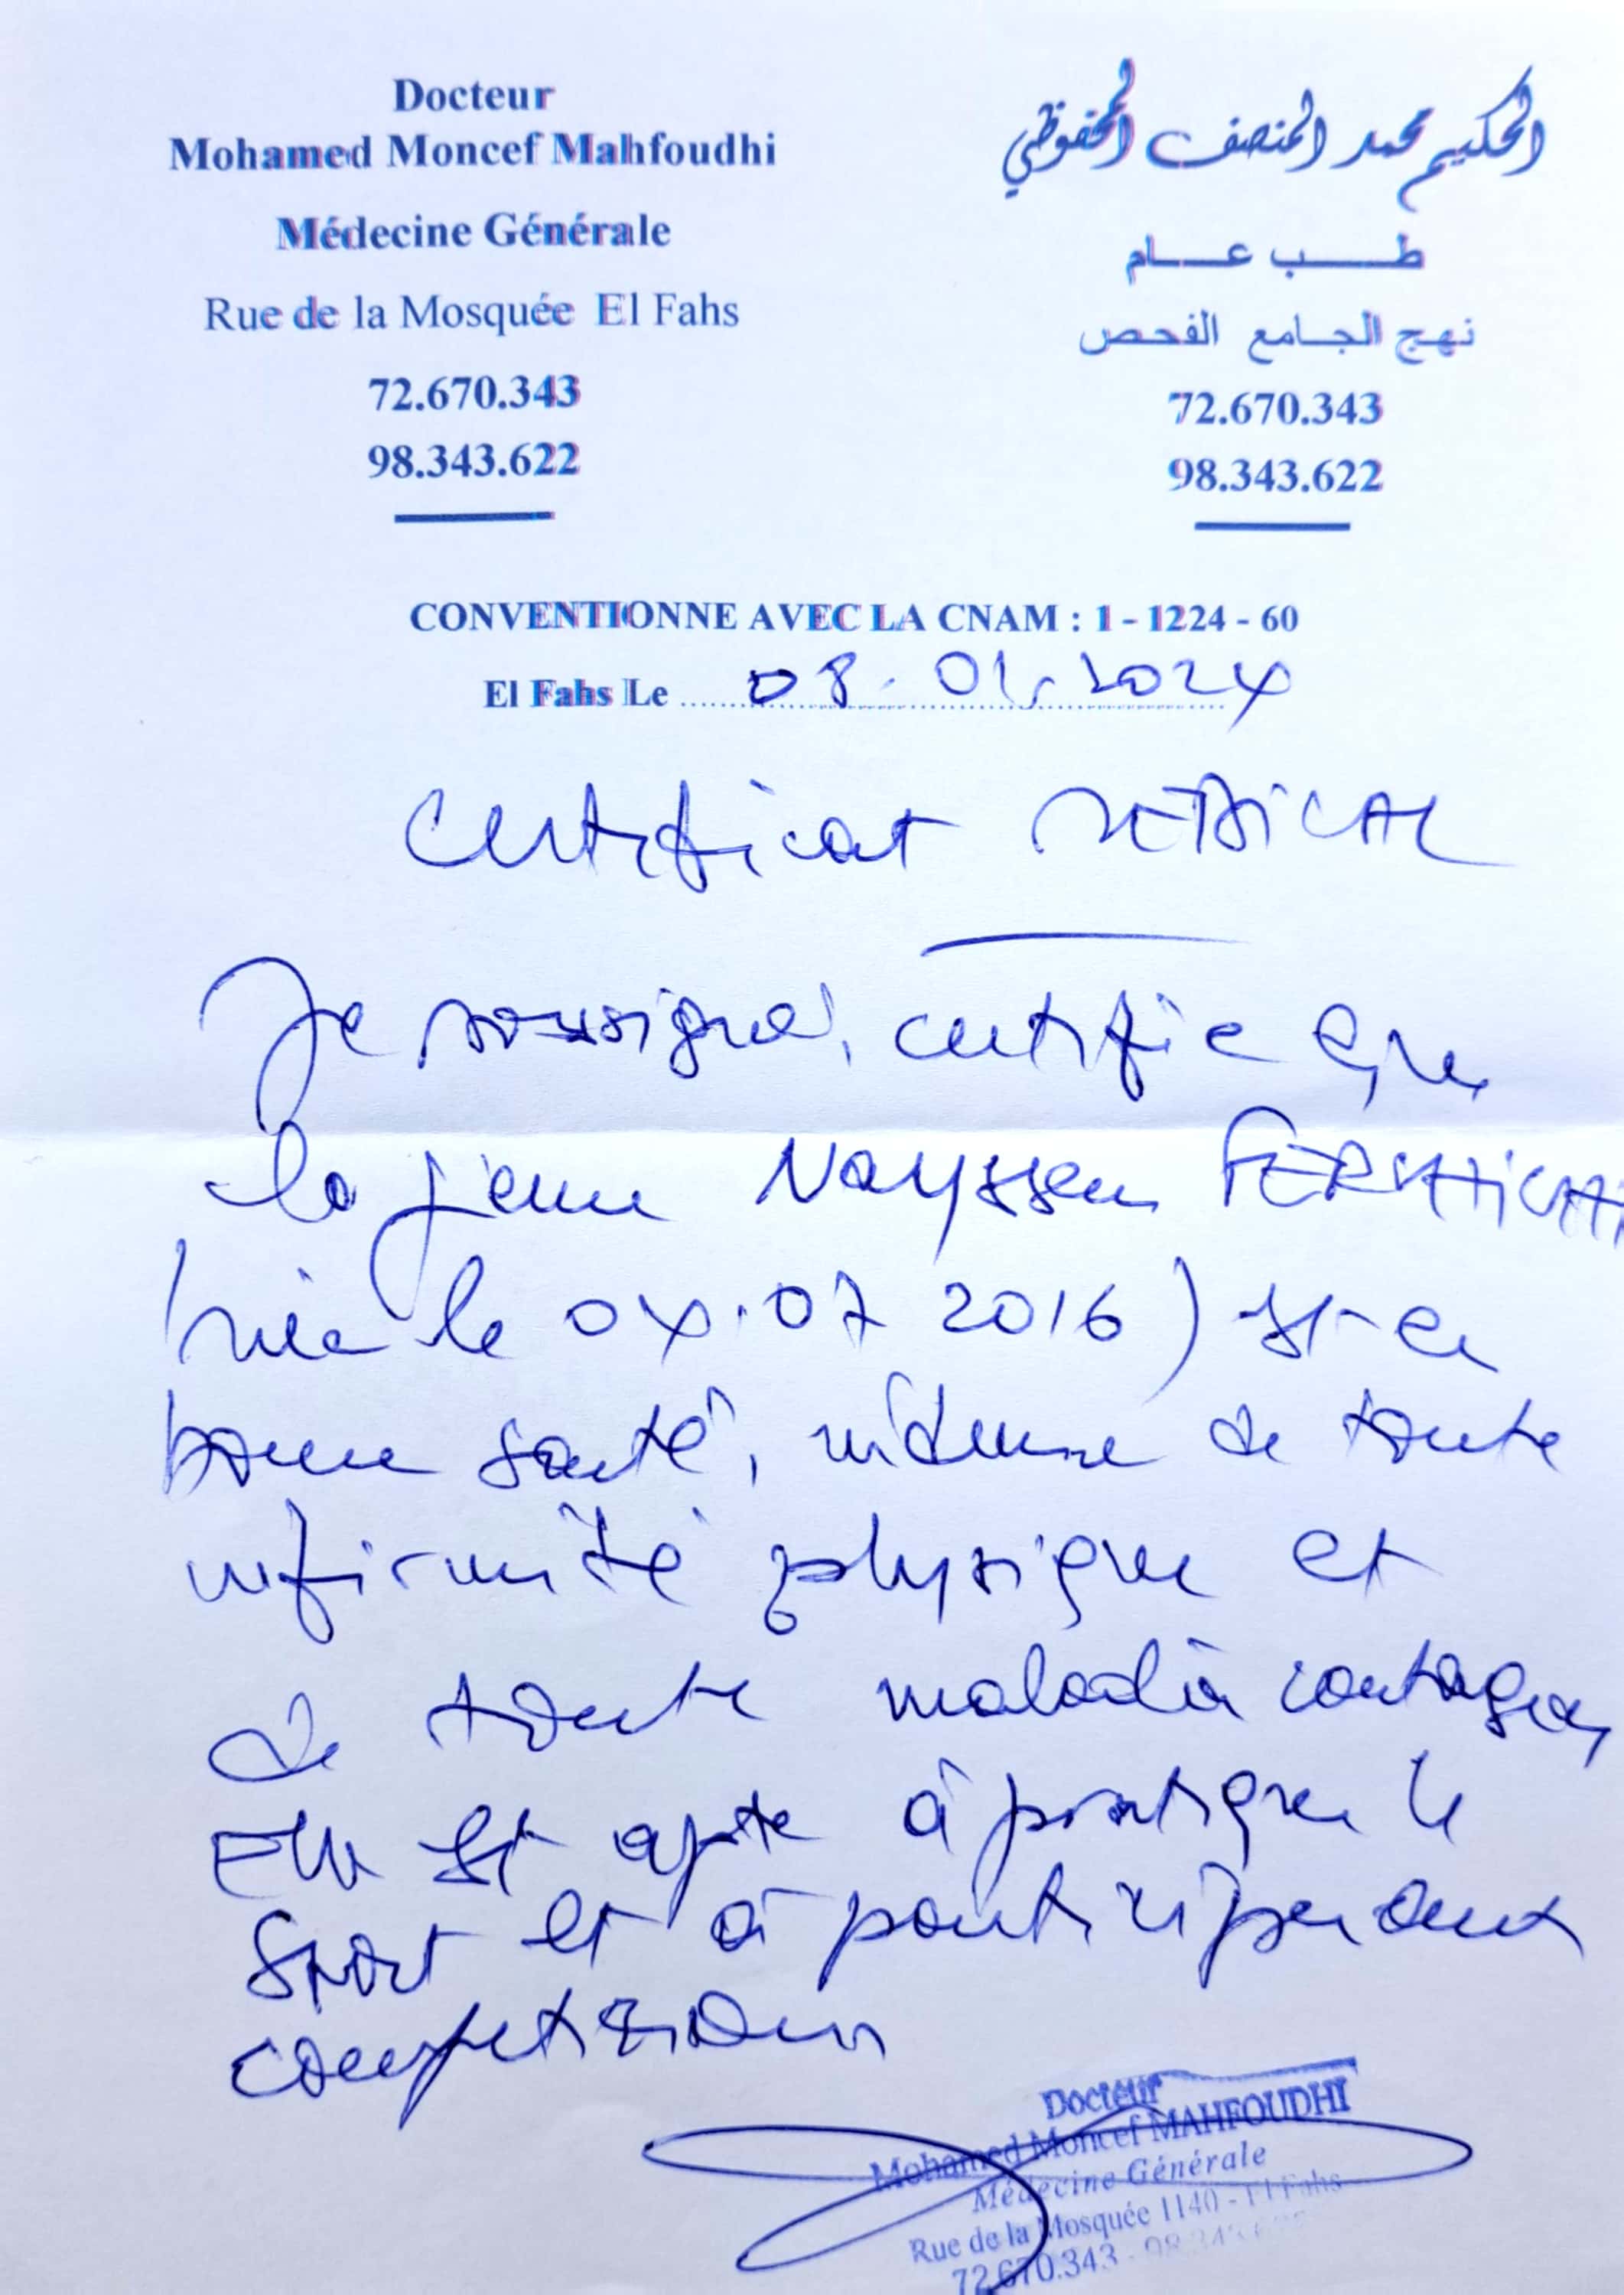 Docteur
Mohamed Moncef Mahfoudhi
Médecine Générale
Rue de la Mosquée El Fahs
72.670.343
98.343.622
الحكيم محمد المنصف المحفوظي
طب عام
نهج الجامع الفحص
72.670.343
98.343.622
CONVENTIONNE AVEC LA CNAM : 1 - 1224 - 60
El Fahs Le 08.01.2024
Certificat MEDICAL
Je soussigné, certifie que
la jeune Nayssen
née le 04.07 2016) est en
bonne santé, indemne de toute
infirmité physique et
de toute maladie
Elle est apte à pratiquer le
Sport et à participer aux
competitions
Docteur
Mohamed Moncef MAHFOUDHI
Médecine Générale
Rue de la Mosquée 1140 - El Fahs
72.670.343 - 98.343.622